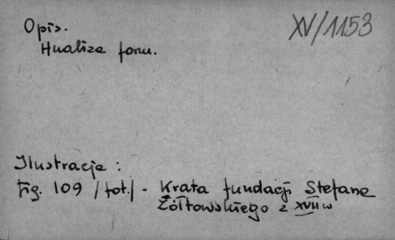 XV/1153
Opis.
Analiza form.
Ilustracje:
Fig. 109 /fot./ - Krata fundacji Stefana
Żółtowskiego z XVII w